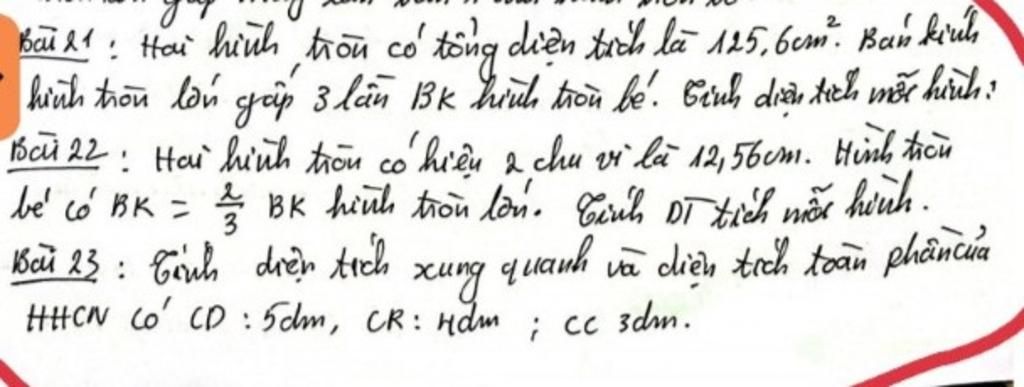 Bài 21 : Hai hình tròn có tổng diện tích là 125,6cm². Bán kính
hình tròn lớn gấp 3 lần BK hình tròn bé. Tính diện tích mỗi hình?
Bài 22 : Hai hình tròn có hiệu 2 chu vi là 12,56cm. Hình tròn
bé có BK = 2/3 BK hình tròn lớn. Tính DT tích mỗi hình.
Bài 23 : Tính diện tích xung quanh và diện tích toàn phần của
HHCN có CD : 5dm, CR : 4dm ; CC 3dm.